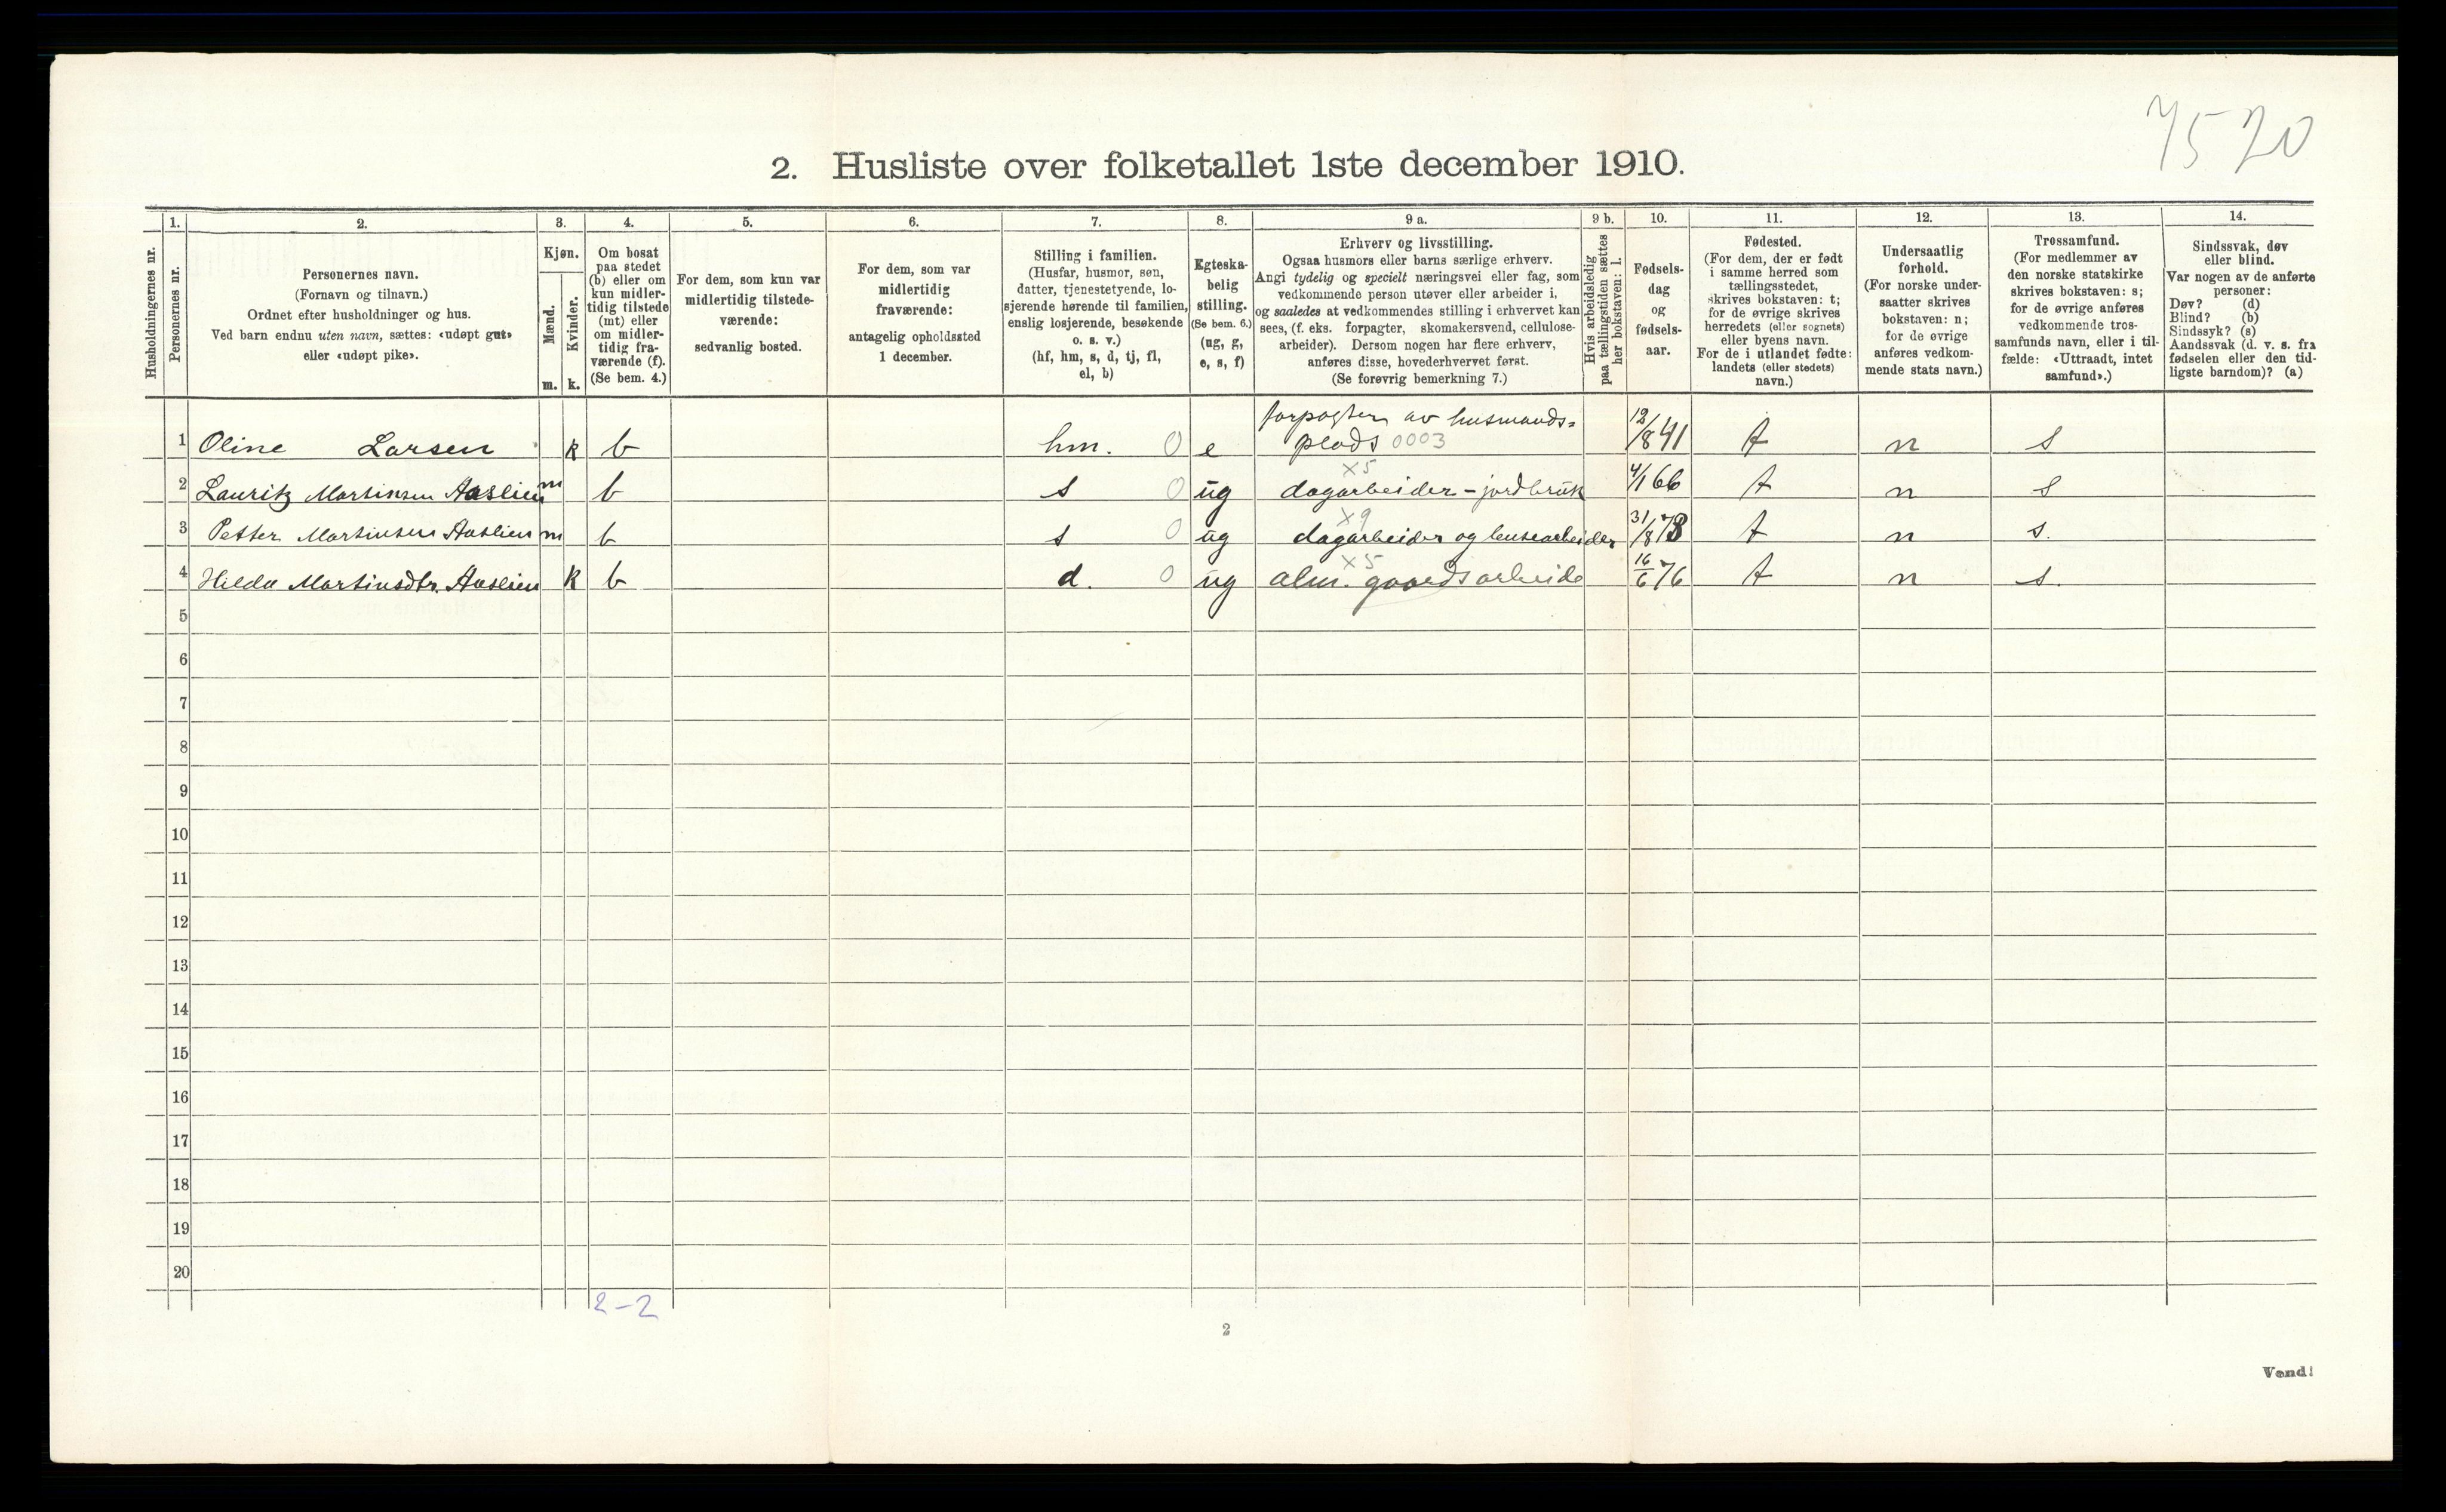 7570
2. Husliste over folketallet 1ste december 1910.
Husholdningernes nr.
1.
Personernes nr.
2.
Personernes navn.
(Fornavn og tilnavn.)
Ordnet efter husholdninger og hus.
Ved barn endnu uten navn, sættes: «udøpt gut»
eller «udøpt pike».
3.
Kjøn.
Mænd.
Kvinder.
m. k.
4.
Om bosat
paa stedet
(b) eller om
kun midler-
tidig tilstede
(mt) eller
om midler-
tidig fra-
værende (f).
(Se bem. 4.)
5.
For dem, som kun var
midlertidig tilstede-
værende:
sedvanlig bosted.
6.
For dem, som var
midlertidig
fraværende:
antagelig opholdssted
1 december.
7.
Stilling i familien.
(Husfar, husmor, søn,
datter, tjenestetyende, lo-
sjerende hørende til familien,
enslig losjerende, besøkende
o. s. v.)
(hf, hm, s, d, tj, fl,
el, b)
8.
Egteska-
belig
stilling.
(Se bem. 6.)
(ug, g,
e, s, f)
9 a.
Erhverv og livsstilling.
Ogsaa husmors eller barns særlige erhverv.
Angi tydelig og specielt næringsvei eller fag, som
vedkommende person utøver eller arbeider i,
og saaledes at vedkommendes stilling i erhvervet kan
sees, (f. eks. forpagter, skomakersvend, cellulose-
arbeider). Dersom nogen har flere erhverv,
anføres disse, hovederhvervet først.
(Se forøvrig bemerkning 7.)
9 b.
Hvis arbeidsledig
paa tællingstiden sættes
her bokstaven: l.
10.
Fødsels-
dag
og
fødsels-
aar.
11.
Fødested.
(For dem, der er født
i samme herred som
tællingsstedet,
skrives bokstaven: t;
for de øvrige skrives
herredets (eller sognets)
eller byens navn.
For de i utlandet fødte:
landets (eller stedets)
navn.)
12.
Undersaatlig
forhold.
(For norske under-
saatter skrives
bokstaven: n;
for de øvrige
anføres vedkom-
mende stats navn.)
13.
Trossamfund.
(For medlemmer av
den norske statskirke
skrives bokstaven: s;
for de øvrige anføres
vedkommende tros-
samfunds navn, eller i til-
fælde: «Uttraadt, intet
samfund».)
14.
Sindssvak, døv
eller blind.
Var nogen av de anførte
personer:
Døv? (d)
Blind? (b)
Sindssyk? (s)
Aandssvak (d. v. s. fra
fødselen eller den tid-
ligste barndom)? (a)
forpagter av husmands=
1 Oline Larsen k b hm. 0 e plads 0003 12/8 41 t n s
x5
2 Lauritz Martinsen Aaslien m b s 0 ug dagarbeider - jordbruk 4/1 66 t n s
x9
3 Petter Martinsen Aaslien m b s 0 ug dagarbeider og lensearbeider 31/8 73 t n s.
x5
4 Hilda Martinsdtr. Aaslien k b d. 0 ug alm. gaardsarbeide 16/6 76 t n s.
5
6
7
8
9
10
11
12
13
14
15
16
17
18
19
20
2-2
2
Vend!